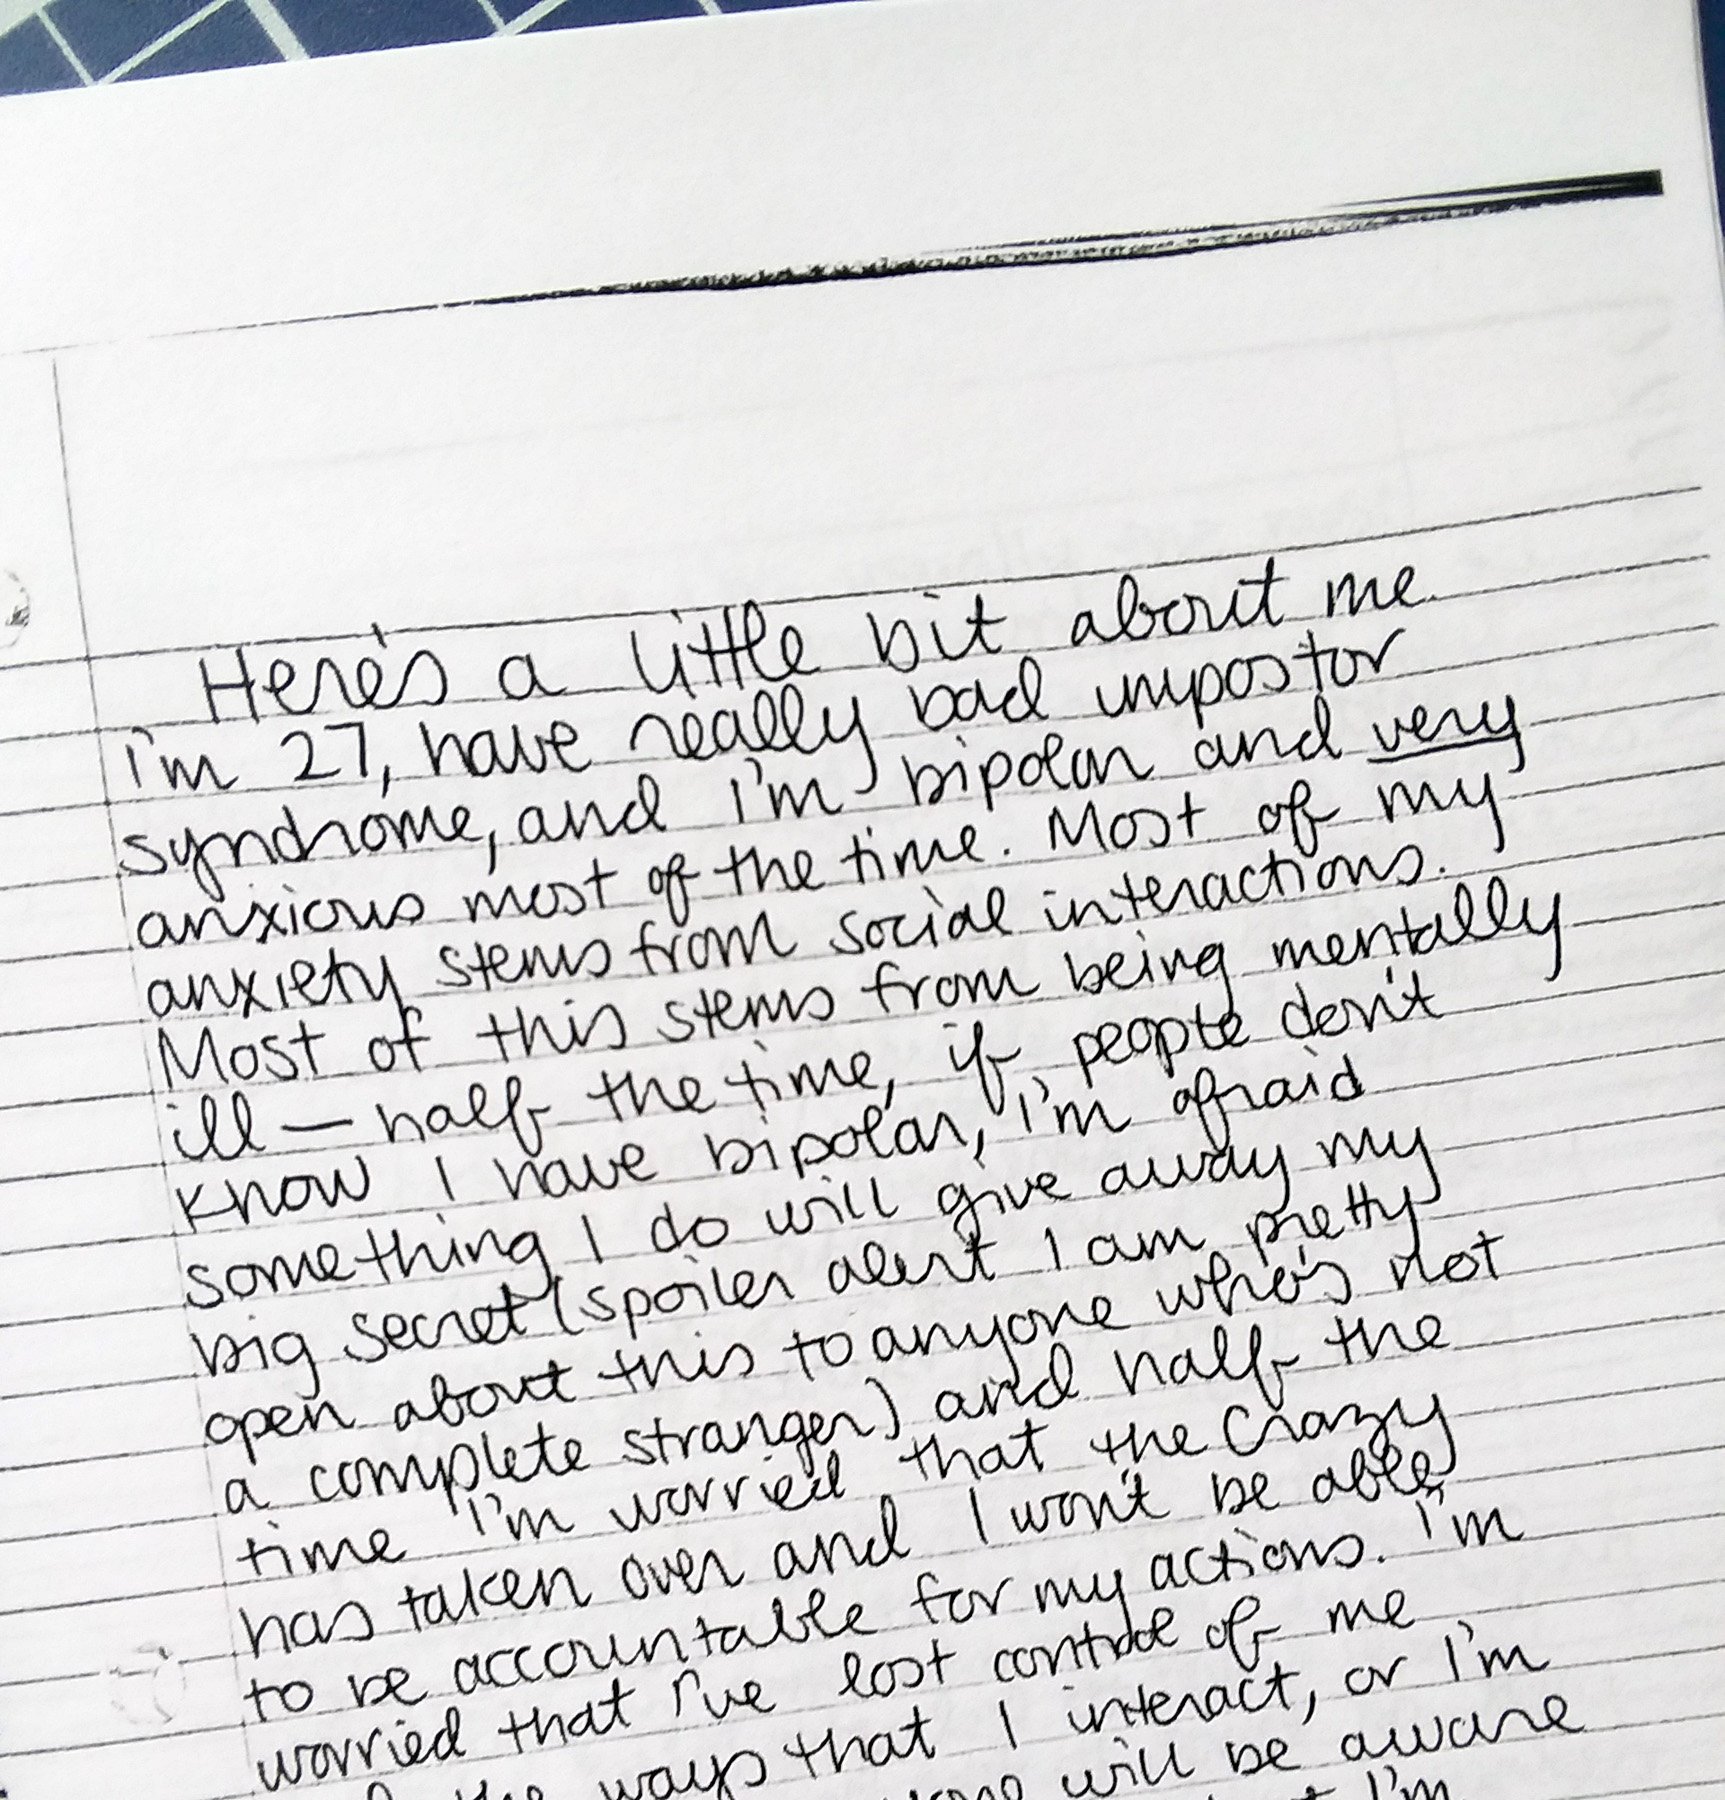 Here's a little bit about me.
I'm 27, have really bad impostor
syndrome, and I'm bipolar and very
anxious most of the time. Most of my
anxiety stems from social interactions.
Most of this stems from being mentally
ill — half the time, if people don't
know I have bipolar, I'm afraid
something I do will give away my
big secret (spoiler alert I am pretty
open about this to anyone who's not
a complete stranger) and half the
time I'm worried that the Crazy
has taken over and I won't be able
to be accountable for my actions. I'm
worried that I've lost control of me
the ways that I interact, or I'm
will be aware
I'm